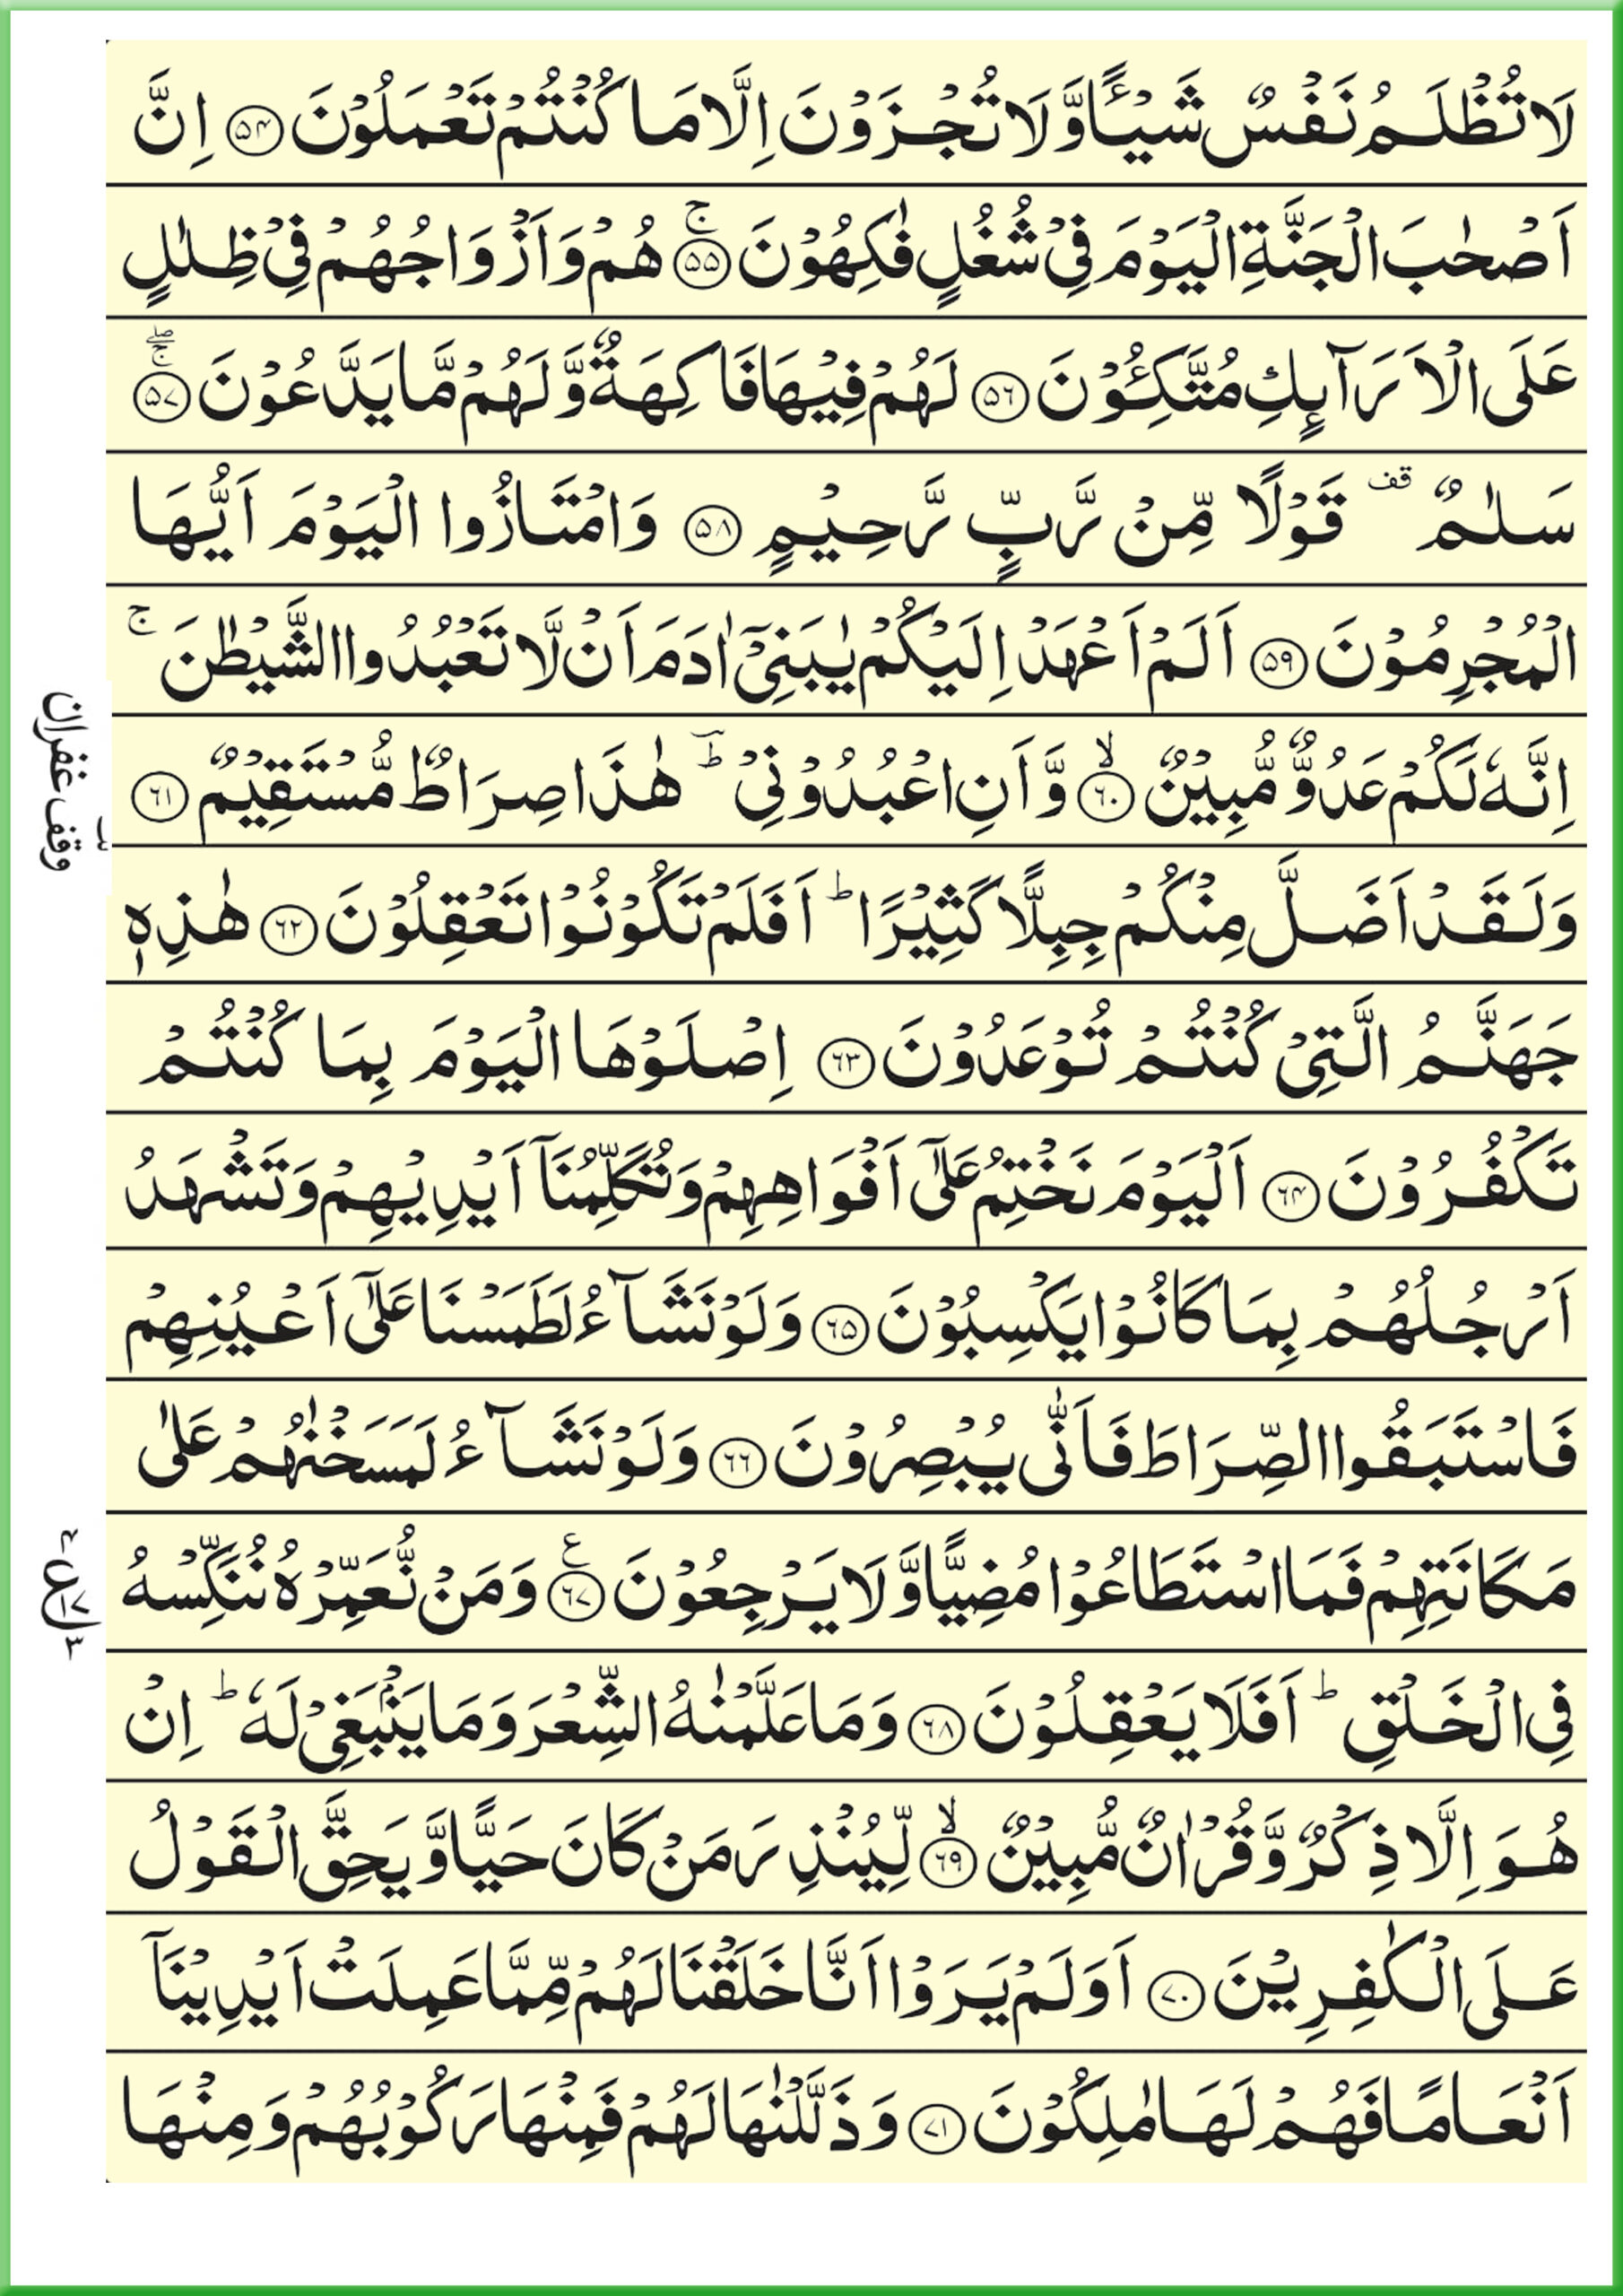 لَا تُظْلَمُ نَفْسٌ شَيْـًٔا وَّلَا تُجْزَوْنَ اِلَّا مَا كُنْتُمْ تَعْمَلُوْنَ ﴿۵۴﴾ اِنَّ
اَصْحٰبَ الْجَنَّةِ الْيَوْمَ فِىْ شُغُلٍ فٰكِهُوْنَ ﴿۵۵﴾ ۚ هُمْ وَاَزْوَاجُهُمْ فِىْ ظِلٰلٍ
عَلَى الْاَرَآئِكِ مُتَّكِـُٔوْنَ ﴿۵۶﴾ لَهُمْ فِيْهَا فَاكِهَةٌ وَّلَهُمْ مَّا يَدَّعُوْنَ ﴿۵۷﴾ ۚ ۖ
سَلٰمٌ قف قَوْلًا مِّنْ رَّبٍّ رَّحِيْمٍ ﴿۵۸﴾ وَامْتَازُوا الْيَوْمَ اَيُّهَا
الْمُجْرِمُوْنَ ﴿۵۹﴾ اَلَمْ اَعْهَدْ اِلَيْكُمْ يٰبَنِىْٓ اٰدَمَ اَنْ لَّا تَعْبُدُوا الشَّيْطٰنَ ۚ
اِنَّهٗ لَكُمْ عَدُوٌّ مُّبِيْنٌ ﴿۶۰﴾ ۙ وَّاَنِ اعْبُدُوْنِىْ ؕ هٰذَا صِرَاطٌ مُّسْتَقِيْمٌ ﴿۶۱﴾
وَلَقَدْ اَضَلَّ مِنْكُمْ جِبِلًّا كَثِيْرًا ؕ اَفَلَمْ تَكُوْنُوْا تَعْقِلُوْنَ ﴿۶۲﴾ هٰذِهٖ
جَهَنَّمُ الَّتِىْ كُنْتُمْ تُوْعَدُوْنَ ﴿۶۳﴾ اِصْلَوْهَا الْيَوْمَ بِمَا كُنْتُمْ
تَكْفُرُوْنَ ﴿۶۴﴾ اَلْيَوْمَ نَخْتِمُ عَلٰٓى اَفْوَاهِهِمْ وَتُكَلِّمُنَآ اَيْدِيْهِمْ وَتَشْهَدُ
اَرْجُلُهُمْ بِمَا كَانُوْا يَكْسِبُوْنَ ﴿۶۵﴾ وَلَوْ نَشَآءُ لَطَمَسْنَا عَلٰٓى اَعْيُنِهِمْ
فَاسْتَبَقُوا الصِّرَاطَ فَاَنّٰى يُبْصِرُوْنَ ﴿۶۶﴾ وَلَوْ نَشَآءُ لَمَسَخْنٰهُمْ عَلٰى
مَكَانَتِهِمْ فَمَا اسْتَطَاعُوْا مُضِيًّا وَّلَا يَرْجِعُوْنَ ﴿۶۷﴾ ع وَمَنْ نُّعَمِّرْهُ نُنَكِّسْهُ
فِى الْخَلْقِ ؕ اَفَلَا يَعْقِلُوْنَ ﴿۶۸﴾ وَمَا عَلَّمْنٰهُ الشِّعْرَ وَمَا يَنْۢبَغِىْ لَهٗ ؕ اِنْ
هُوَ اِلَّا ذِكْرٌ وَّقُرْاٰنٌ مُّبِيْنٌ ﴿۶۹﴾ ۙ لِّيُنْذِرَ مَنْ كَانَ حَيًّا وَّيَحِقَّ الْقَوْلُ
عَلَى الْكٰفِرِيْنَ ﴿۷۰﴾ اَوَلَمْ يَرَوْا اَنَّا خَلَقْنَا لَهُمْ مِّمَّا عَمِلَتْ اَيْدِيْنَآ
اَنْعَامًا فَهُمْ لَهَا مٰلِكُوْنَ ﴿۷۱﴾ وَذَلَّلْنٰهَا لَهُمْ فَمِنْهَا رَكُوْبُهُمْ وَمِنْهَا
وقف غفران
ع ۱۷ ۳